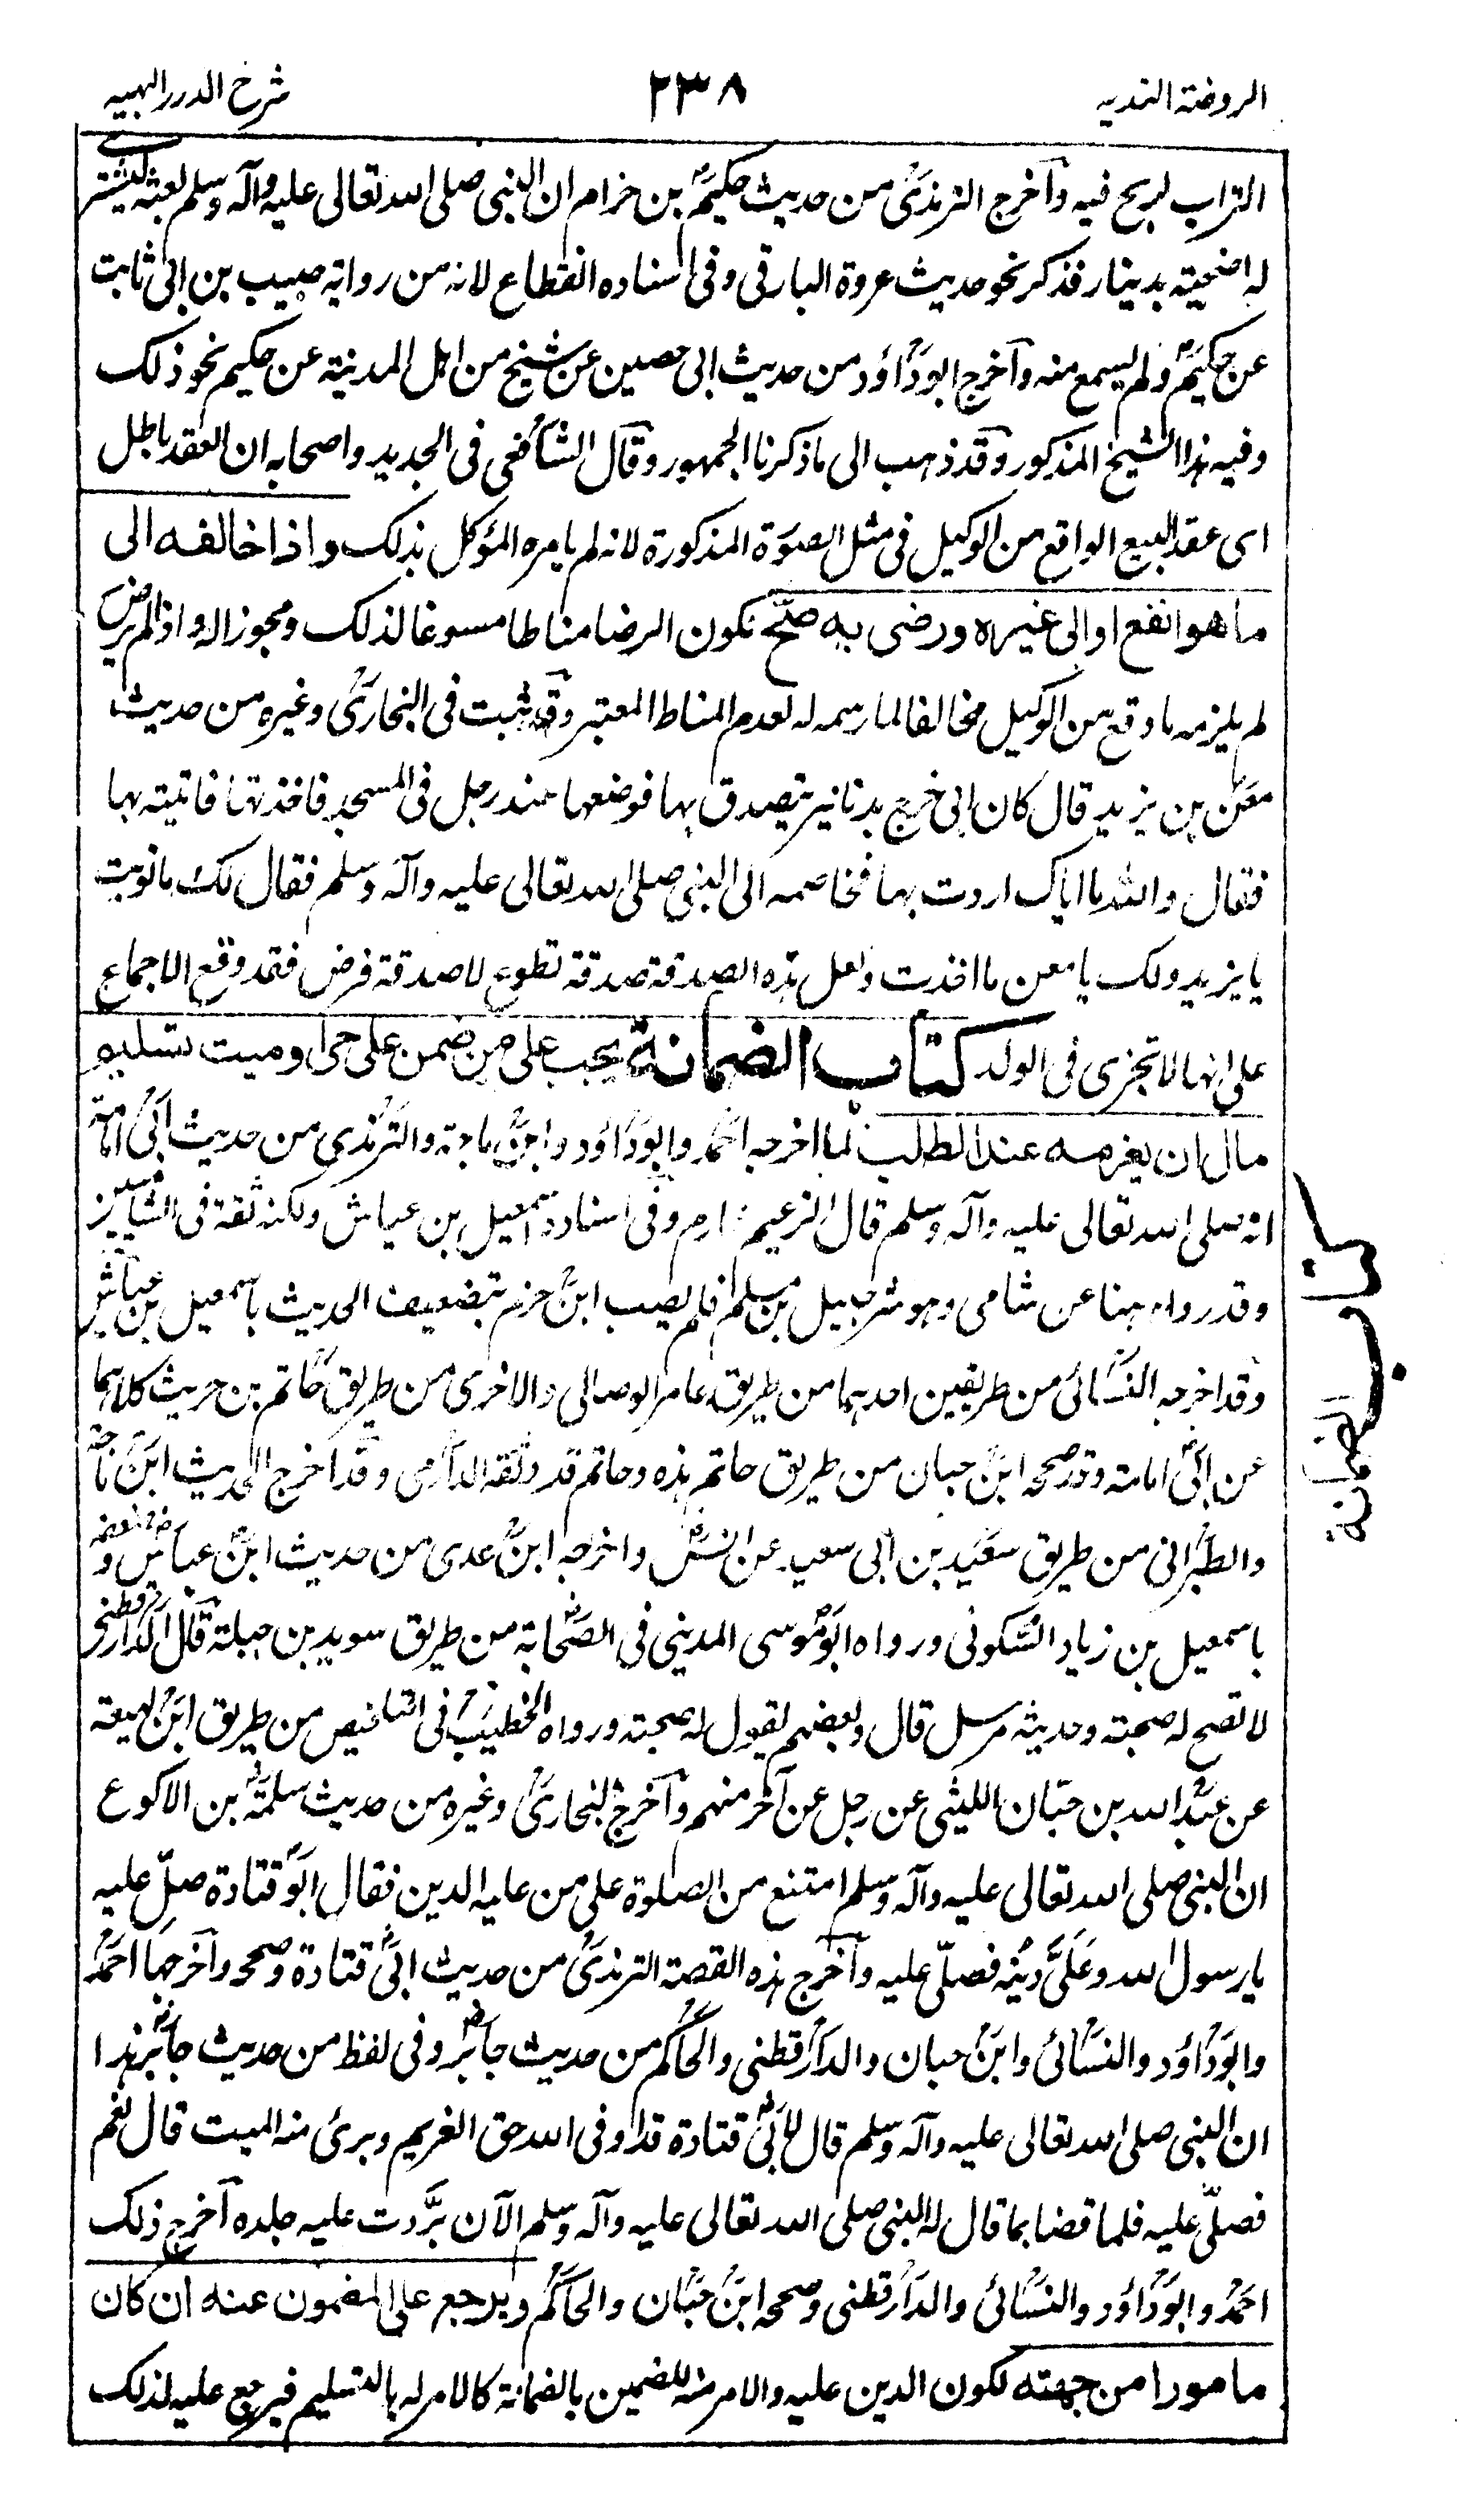 الروضة الندیہ ۲۳۸ شرح الدرر البہیہ
التراب لربح فيه وآخرج الترمذی من حديث حكيم بن حزام ان النبی صلی الله تعالی علیه وآله وسلم بعثه ليشتری
له اضحية بدينار فذكر نحو حديث عروة البارقی وفی اسناده انقطاع لانه من رواية حبيب بن ابی ثابت
عن حكيم ولم يسمع منه وآخرج ابوداؤد من حديث ابی حصين عن شيخ من اهل المدينة عن حكيم نحو ذلك
وفيه هذا الشيخ المذكور وقد ذهب الی ما ذكرنا الجمهور وقال الشافعی فی الجديد واصحابه ان العقد باطل
ای عقد البيع الواقع من الوكيل فی مثل الصورة المذكورة لانه لم يامره المؤكل بذلك واذا خالفه الی
ما هو انفع او الی غيره ورضی به صحّ لكون الرضا مناطا مسوغا لذلك ومجوزا له واذا لم يرض
لم يلزمه ما وقع من الوكيل مخالفا لما رسمه له لعدم المناط المعتبر وقد ثبت فی البخاری وغيره من حديث
معن بن يزيد قال كان ابی خرج بدنانير يتصدق بها فوضعها عند رجل فی المسجد فاخذتها فاتيته بها
فقال والله ما اياك اردت بها فخاصمه الی النبی صلی الله تعالی علیه وآله وسلم فقال لك ما نويت
يا يزيد ولك يا معن ما اخذت ولعل هذه الصدقة صدقة تطوع لا صدقة فرض فقد وقع الاجماع
علی انها لا تجزی فی الولد كتاب الضمانة يجب علی من ضمن علی حی او ميت تسليم
مال ان يغرمه عند الطلب لما اخرجه احمد وابوداؤد وابن ماجة والترمذی من حديث ابی امامة
انه صلی الله تعالی علیه وآله وسلم قال الزعيم غارم وفی اسناده اسمعيل بن عياش ولكنه ثقة فی الشاميين
وقد رواه هنا عن شامی وهو شرحبيل بن مسلم فلم يصب ابن حزم بتضعيف الحديث باسمعيل بن عياش
وقد اخرجه النسائی من طريقين احدهما من طريق عامر الوصالی والاخری من طريق حاتم بن حريث كلاهما
عن ابی امامة وقد صححه ابن حبان من طريق حاتم هذه وحاتم قد وثقه الدارمی وقد اخرج الحديث ابن ماجة
والطبرانی من طريق سعيد بن ابی سعيد عن انس واخرجه ابن عدی من حديث ابن عباس وضعفه
باسمعيل بن زياد السكونی ورواه ابو موسی المدينی فی الصحابة من طريق سويد بن جبلة قال الدارقطنی
لا تصح له صحبة وحديثه مرسل قال وبعضهم يقول له صحبته ورواه الخطيب فی التلخيص من طريق ابن لهيعة
عن عبد الله بن حبان الليثی عن رجل عن آخر منهم وآخرج البخاری وغيره من حديث سلمة بن الاكوع
ان النبی صلی الله تعالی علیه وآله وسلم امتنع من الصلوة علی من عليه الدين فقال ابو قتادة صلّ عليه
يا رسول الله وعَلَیَّ دَينه فصلّی عليه وآخرج هذه القصة الترمذی من حديث ابی قتادة وصححه وآخرجها احمد
وابوداؤد والنسائی وابن حبان والدارقطنی والحاكم من حديث جابر وفی لفظ من حديث جابر هذا
ان النبی صلی الله تعالی علیه وآله وسلم قال لابی قتادة قد اوفی الله حق الغريم وبرئ منه الميت قال نعم
فصلّی عليه فلما قضا بما قال له النبی صلی الله تعالی علیه وآله وسلم الآن برَّدت عليه جلده آخرج ذلك
احمد وابوداؤد والنسائی والدارقطنی وصححه ابن حبان والحاكم ويرجع علی المضمون عنه ان كان
مامورا من جهته لكون الدين عليه والامر منه للضمين بالضمانة كالامر له بالتسليم فيرجع عليه لذلك
كتاب الضمانة